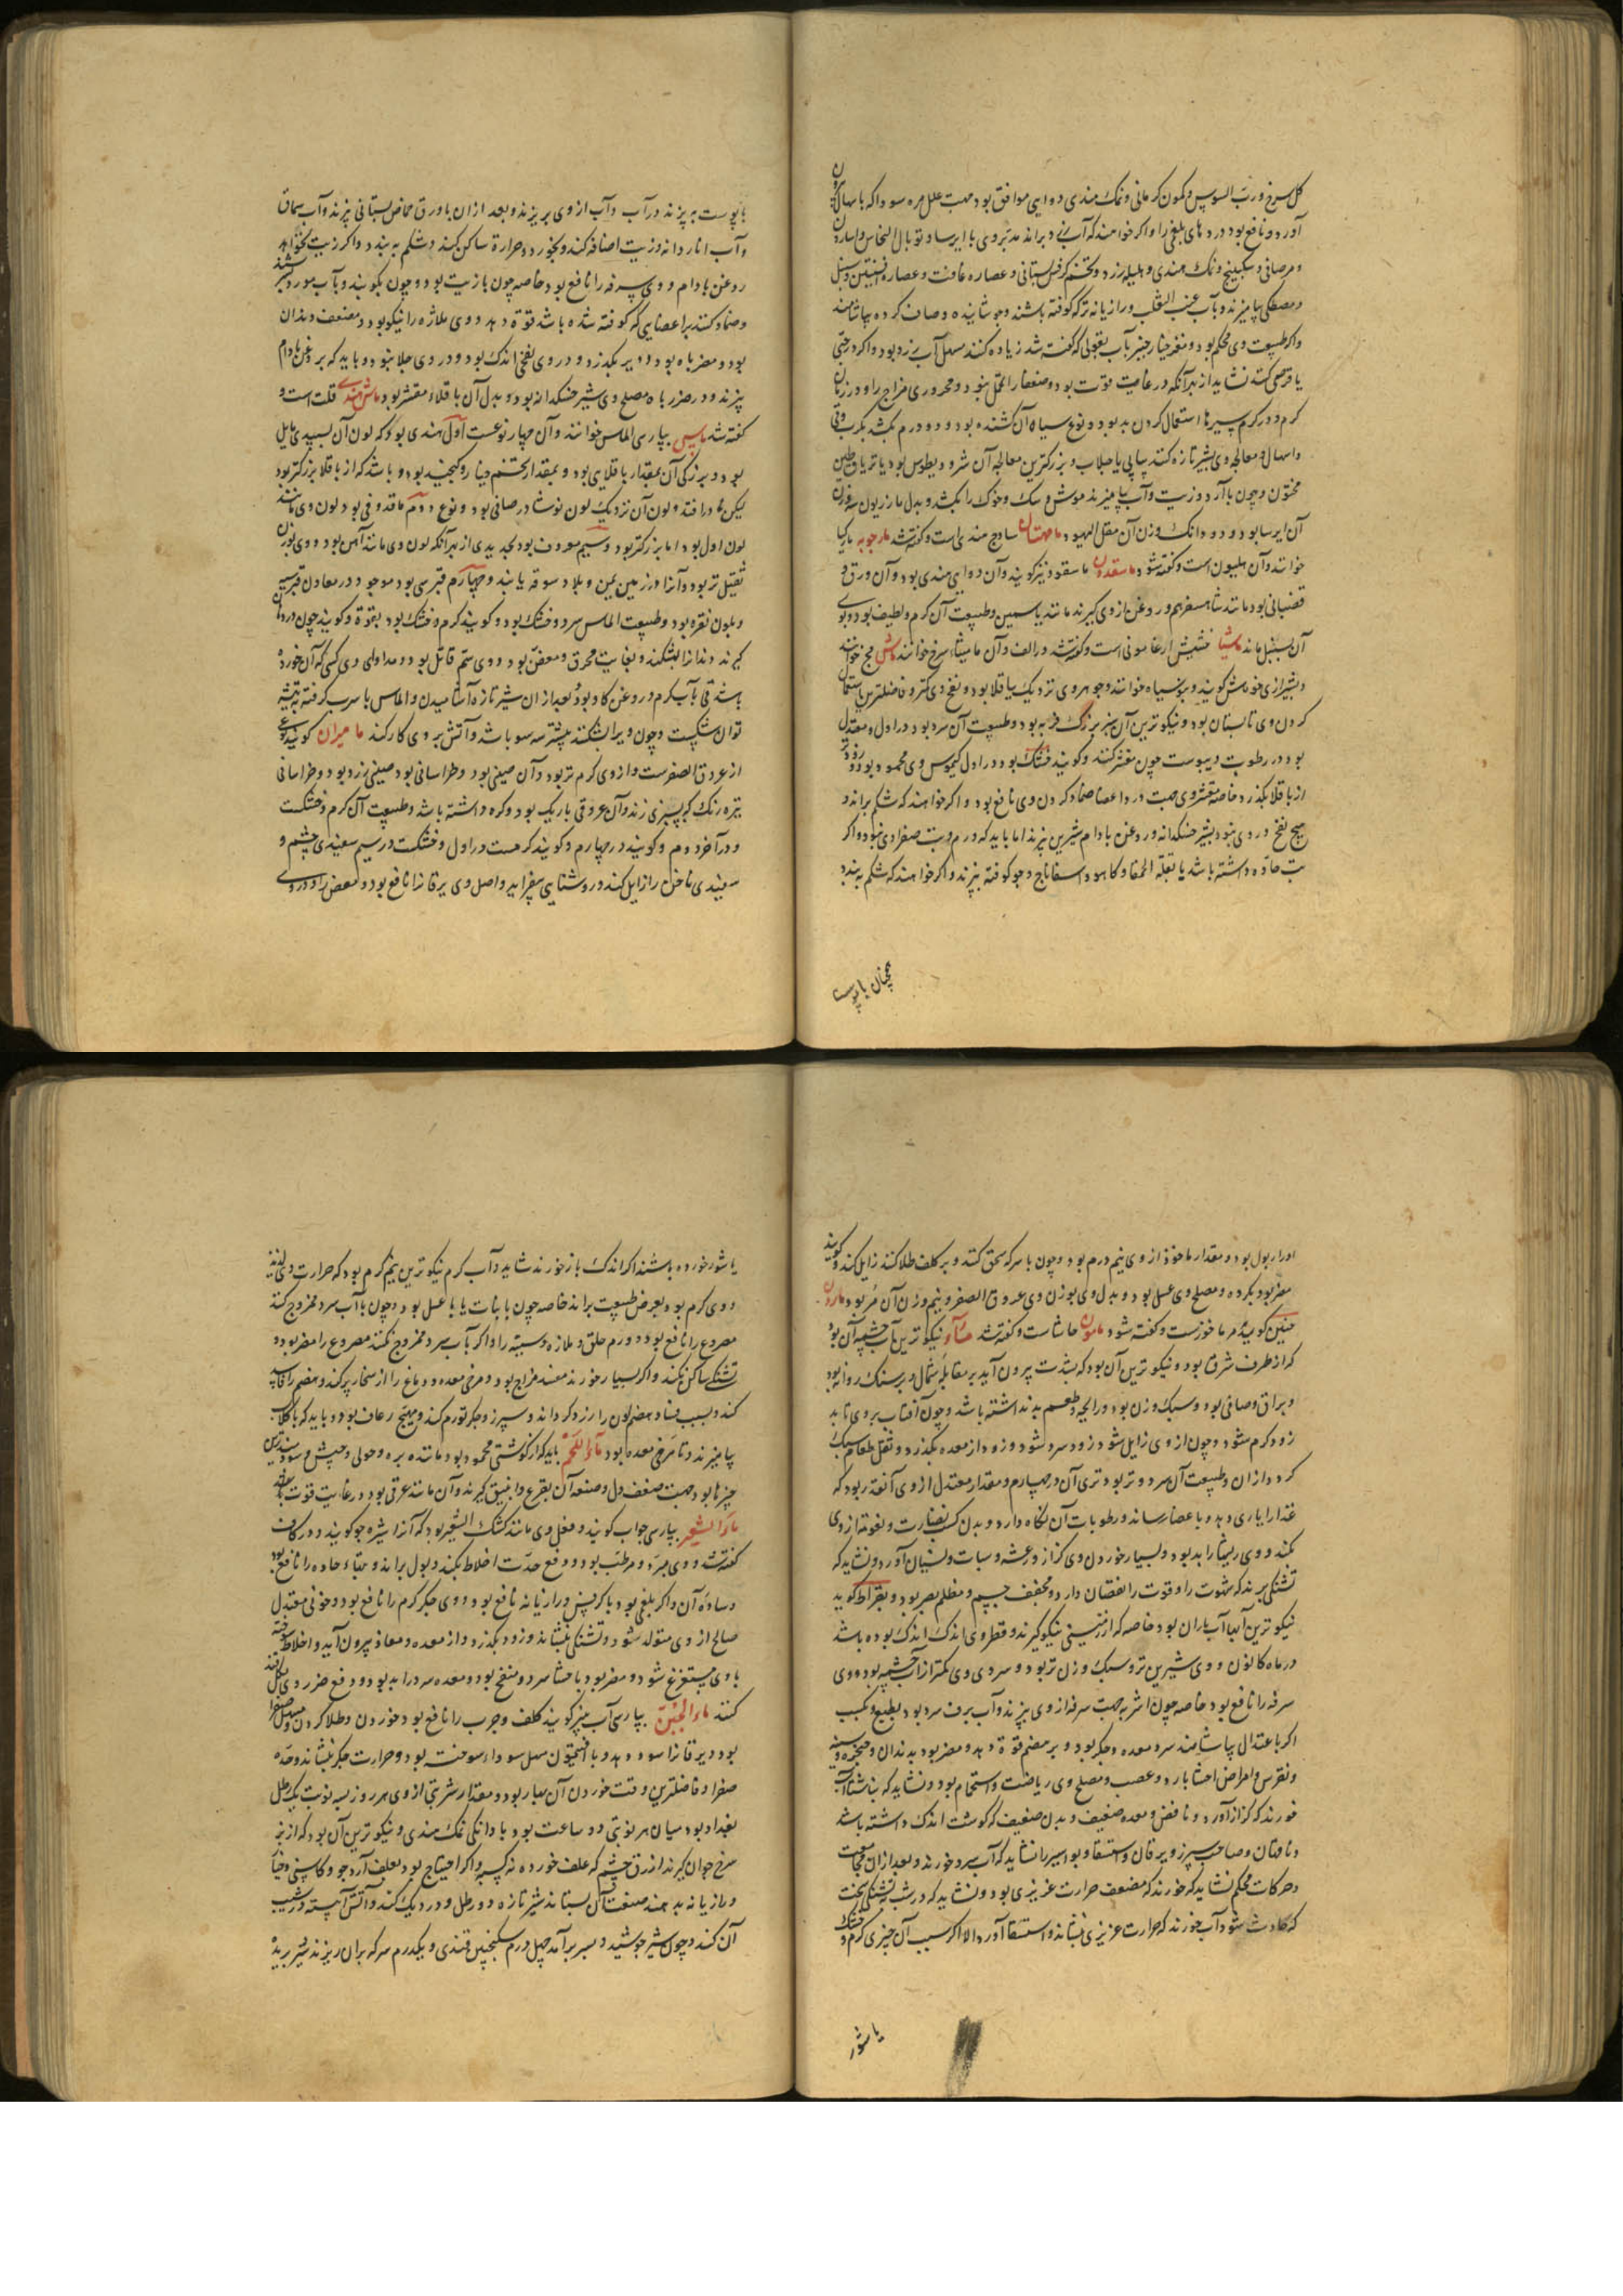 کل سرخ و رب السوس و کمون کرمانی و نمک هندی دوایی موافق بود جهت علل مره سودا که باسهال بیرون
آورد و نافع بود درد های بلغمی را و اکر خواهند که آب براند مدبر وی با ایرسا و توبال النحاس و اسارون
و مر صافی و سکبینج و نمک هندی و هلیله زرد و تخم کرفس بستانی و عصاره غافث و عصاره افسنتین و سنبل
و مصطکی بیامیزند و بآب عنب الثعلب و رازیانه تر که کوفته باشند و جوشانیده و صاف کرده بیاشامند
و اکر طبیعت وی محکم بود و مغز خیارچنبر بآب بقولی که کفته شد زیاده کنند مسهل آب زرد بود و اکر در حبی
یا قرصی کنند نشاید از بهر آنکه در غایت قوت بود و ضعفا را تحمل نبود و محروری مزاج را و در زمان
کرم و در کرم سیرها استعمال کردن بد بود و نوع سیاه آن کشنده بود و دو درم بکشد بکرب و قی
و اسهال و معالجه وی بشیر تازه کنند پیاپی یا جلاب و بزرکترین معالجه آن مثرودیطوس بود یا تریاق و طین
مختوم و چون با آرد و زیت و آب بیامیزند موش و سک و خوک را بکشد و بدل مازریون سه وزن
آن ایرسا بود و دو دانک وزن آن مقل الیهود ماهتان ساذج هندی است و کفته شد مارچوبه مارکیا
خوانند و آن هلیون است و کفته شود ماسقدون ماسقود نیز کویند و آن دوایی هندی بود و آن ورق و
قضبانی بود مانند شاهسفرم و روغن از وی کیرند مانند یاسمین و طبیعت آن کرم و لطیف بود و بوی
آن بسنبل ماند ماشیا خشیش ارغامونی است و کفته شد در الف و آن مامیثاء سرخ خوانند ماش مج خوانند
و بشیرازی خود ماش کویند و بنوسیاه خوانند و جوهر وی نزدیک بباقلا بود و نفخ وی کمتر و فاضلترین استعمال
کردن وی تابستان بود و نیکوترین آن سبز بزرک فربه بود و طبیعت آن سرد بود در اول و معتدل
بود در رطوبت و یبوست چون مقشر کنند و کویند خشک بود در اول کیموس وی محمود بود و زودتر
از باقلا بکذرد خاصه مقشر وی جهت درد اعضا ضماد کردن وی نافع بود و اکر خواهند که شکم براند و
هیچ نفخ در وی نبود بشیر خشکدانه و روغن بادام شیرین پزند اما باید که ورم و تب صفراوی نبود و اکر
تب حاده داشته باشد با بقلة الحمقا و کاهو و اسفاناج و جو کوفته پزند و اکر خواهند که شکم ببندد
همچنان باپوست
باپوست بپزند در آب و آب از وی بریزند و بعد از ان با ورق حماض بستانی پزند و آب سماق
و آب اناردانه و زیت اضافه کنند و بخورد و حرارة ساکن کند و شکم ببندد و اکر زیت نخواهد
روغن بادام و وی سرفه را نافع بود خاصه چون با زیت بود و چون بکوبند و بآب مورد تر بسرشند
و ضماد کنند بر اعضایی که کوفته شده باشد قوة دهد و وی ملازه را نیکو بود و مضعف دندان
بود و مضر باه بود و دیر بکذرد و در وی نفخی اندک بود و در وی جلا نبود و باید که بروغن بادام
پزند و در مضر باه مصلح وی شیر خشکدانه بود و بدل آن باقلاء مقشر بود ماش هندی قلت است و
کفته شد ماس بپارسی الماس خوانند و آن چهار نوعست اول هندی بود که لون آن بسپیدی مایل
بود و بزرکی آن بمقدار باقلایی بود و بمقدار تخم خیار و کنجد بود و باشد که از باقلا بزرکتر بود
لیکن نادر افتد و لون آن نزدیک لون نوشادر صافی بود و نوع دوم ماقدونی بود لون وی مانند
لون اول بود اما بزرکتر بود و سیم معروف بود بحدیدی از بهر آنکه لون وی مانند آهن بود و وی بوزن
ثقیل تر بود و آنرا در زمین یمن و بلاد سوقه یابند و چهارم قبرسی بود موجود در معادن قبرس
و بلون نقره بود و طبیعت الماس سرد و خشک بود و کویند کرم و خشک بود بقوة و کویند چون در دهان
کیرند دندانرا بشکند و بغایت محرق و معفن بود و وی سم قاتل بود و مداوای وی کسی که آن خورده
باشد قی بآب کرم و روغن کاو بود و بعد از ان شیر تازه آشامیدن و الماس با سرب کرفته بتیشه
توان شکست و چون ویرا بشکنند بیشتر سه سو باشد و آتش بر وی کار نکند مامیران کویند نوعی
از عروق الصفرست و از وی کرم تر بود و آن صینی بود و خراسانی بود صینی زرد بود و خراسانی
تیره رنک که بسبزی زند و آن عروقی باریک بود و کره داشته باشد و طبیعت آن کرم و خشکست
و در آخر دوم و کویند در چهارم و کویند کرمست در اول و خشکست در سیم سفیدی چشم و
سفیدی ناخن را زایل کند و روشنایی بیفزاید و اصل وی یرقانرا نافع بود و مغص را و در وی
ادرار بول بود و مقدار ماخوذ از وی نیم درم بود و چون با سرکه سحق کنند و بر کلف طلا کنند زایل کند و کویند
مضر بود بکرده و مصلح وی عسل بود و بدل وی بوزن وی عروق الصفر و نیم وزن آن مر بود مارون
حنین کوید مرماخوزست و کفته شود مامون حاشاست و کفته شد ماء نیکوترین آب چشمه آن بود
که از طرف شرق بود و نیکوترین آن بود که بشدت بیرون آید بر مقابله شمال و بر سنک روانه بود
و براق و صافی بود و سبک وزن بود و رایحه و طعم بد نداشته باشد و چون آفتاب بر وی تابد
زود کرم شود و چون از وی زایل شود زود سرد شود و زود از معده بکذرد و ثقل طعام سبک
کرداند ازان و طبیعت آن سرد و تر بود تری آن در چهارم و مقدار معتدل از وی آنقدر بود که
غذا را یاری دهد و باعضا رساند و رطوبات آن نکاه دارد و بدن کسب نضارت و نعومة از وی
کند و وی ریشها را بد بود و بسیار خوردن وی کزاز و رعشه و سبات و نسیان آورد و نشاید که
تشنکی برند که شهوت را و قوت را نقصان دارد و مجفف جسم و مظلم بصر بود و بقراط کوید
نیکوترین آبها آب باران بود خاصه که از زمینی نیکو کیرند و قطر وی اندک اندک بوده باشد
در ماه کانون و وی شیرین تر و سبک وزن تر بود و سردی وی کمتر از آب چشمه بود و وی
سرفه را نافع بود خاصه چون اشربه جهت سرفه از وی پزند و آب برف سرد بود بطبع و مکسب
اکر باعتدال بیاشامند سرد معده و جکر بود و بر هضم قوة دهد و مضر بود بدندان و حنجره و سینه
و نقرس و امراض احشا بارد و عصب و مصلح وی ریاضت و استحمام بود و نشاید که بناشتا آب
خورند که کزاز آورد و نافض و معده ضعیف و بدن ضعیف که کوشت اندک داشته باشد
و ناقهان و صاحب سپرز و یرقان و استسقا و بواسیر را نشاید که آب سرد خورند و بعد از ان مجامعت
و حرکات محکم نشاید که خورند که مضعف حرارت غریزی بود و نشاید که در شب تشنکی سخت
که حادث شود آب خورند که حرارت غریزی بنشاند و استسقا آورد الا اکر سبب آن چیزی کرم و خشک
یا شور
یا شور خورده باشند اکر اندک باز خورند شاید و آب کرم نیکوترین نیم کرم بود که حرارت وی لذیذ
و وی کرم بود بعرض طبیعت براند خاصه چون با نبات یا با عسل بود و چون با آب سرد ممزوج کنند
مصروع را نافع بود و ورم حلق و ملازه و سینه را و اکر بآب سرد ممزوج نکنند مصروع را مضر بود و
تشنکی ساکن نکند و اکر بسیار خورند مفسد مزاج بود و مرخی معده و دماغ را از بخار پر کند و هضم را تباه
کند و بسبب فساد هضم لون را زرد کرداند و سپرز و جکر تورم کند و مهیج رعاف بود و باید که با کلاب
بیامیزند و نامرخی معده بود ماء اللحم باید که از کوشتی محمود بود مانند بره و حولی و جنس و سودمندترین
چیزها بود جهت ضعف دل و صنعه آن بقرع و انبیق کیرند و آن مانند عرقی بود و در غایت قوت باشد
ماء الشعیر بپارسی جواب کویند و فعل وی مانند کشک الشعیر بود که آنرا شیره جو کویند و در کاف
کفته شد و وی مبرد و مرطب بود و وقع حدت اخلاط بکند و بول براند و تبهاء حاده را نافع بود
و ساده آن و اکر بلغمی بود با کرفس و رازیانه نافع بود و وی جکر کرم را نافع بود و خونی معتدل
صالح از وی متولد شود و تشنکی بنشاند و زود بکذرد و از معده و معا زود بیرون آید و اخلاط سوخته
با وی مستفرغ شود و مضر بود باحشا سرد و منفخ بود و معده سرد را بد بود و دفع ضرر وی بکلقند
کنند ماء الجبن بپارسی آب پنیر کویند کلف و جرب را نافع بود خوردن و طلا کردن و مسهل صفرا
بود و یرقانرا سود دهد و با افتیمون مسهل سوداء سوخته بود و حرارت جکر بنشاند و حده
صفرا و فاضلترین وقت خوردن آن بهار بود و مقدار شربتی از وی هر روز بسه نوبت یک رطل
بغداد بود میان هر نوبتی دو ساعت بود با دانکی نمک هندی و نیکوترین آن بود که از بز
سرخ جوان کیرند ازرق چشم که علف خورده نه کسبه و اکر احتیاج بود بعلف آرد جو و کاسنی و خیار
و رازیانه بدهند صفت آن بستانند شیر تازه دو رطل و در دیک کنند و آتش آهسته در شیب
آن کنند و چون شیر جوشید و بسر برآمد چهل درم سکنجبین قندی و یکدرم سرکه بران ریزند شیر بریده